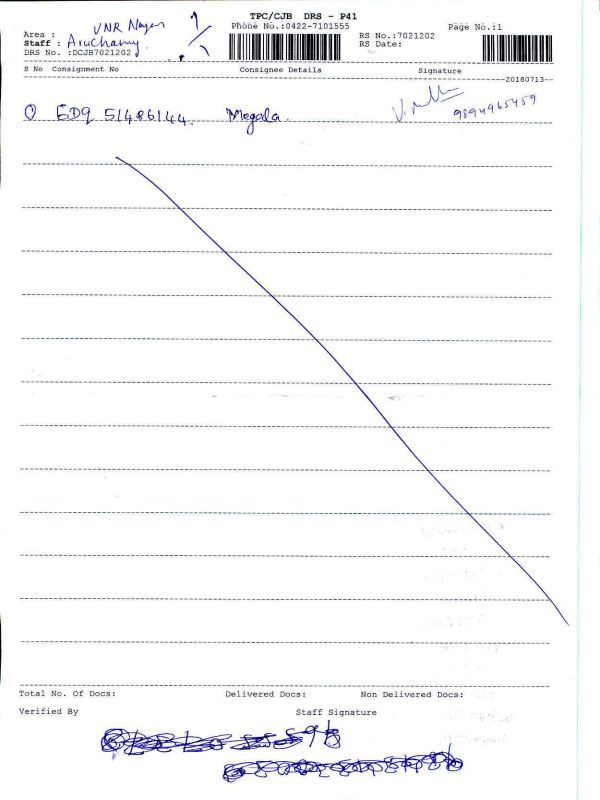 TPC/CJB DRS - P41
Area : VNR Nagar
Phone No.:0422-7101555
Page No.:1
Staff : Aruchamy
RS No.:7021202
DRS No. :DCJB7021202
RS Date:
S No Consignment No Consignee Details Signature
20180713
1 EDQ 51486144. Megala.
9894965459
Total No. Of Docs: Delivered Docs: Non Delivered Docs:
Verified By Staff Signature